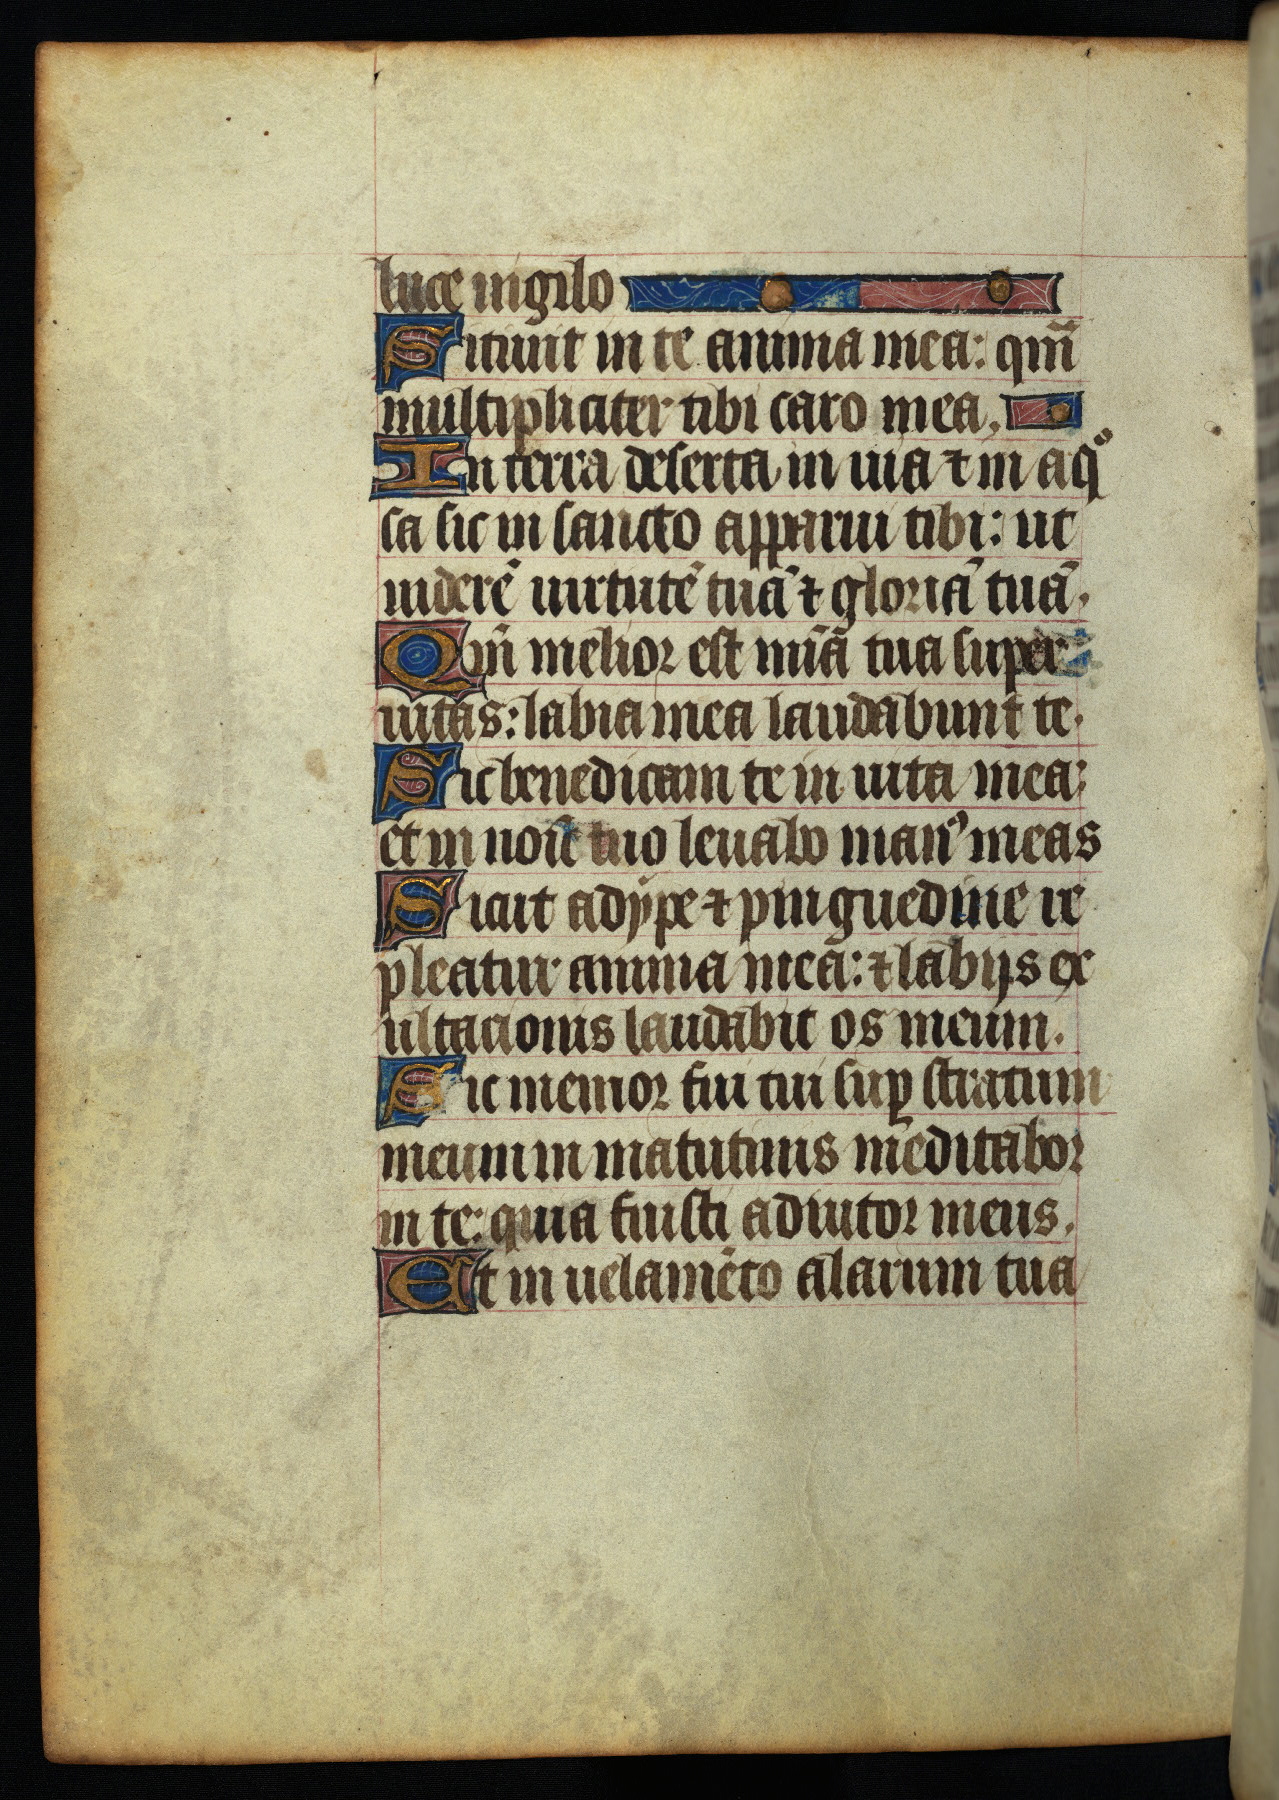 luce uigilo
Sitiuit in te anima mea: qm̄
multipliciter tibi caro mea.
In terra deserta in uia ⁊ in aqͦ
sa sic in sancto apparui tibi: ut
uiderē uirtutē tuā ⁊ gloriā tuā.
Qm̄ melior est mīa tua super
uitas: labia mea laudabunt te.
Sic benedicam te in uita mea:
et in noīe tuo leuabo manꝰ meas
Sicut adype ⁊ pinguedine re
pleatur anima mea: ⁊ labijs ex
ultacionis laudabit os meum.
Sic memor fui tui suꝑ stratum
meum in matutinis meditabor
in te: quia fuisti adiutor meus.
Et in uelamēto alarum tua